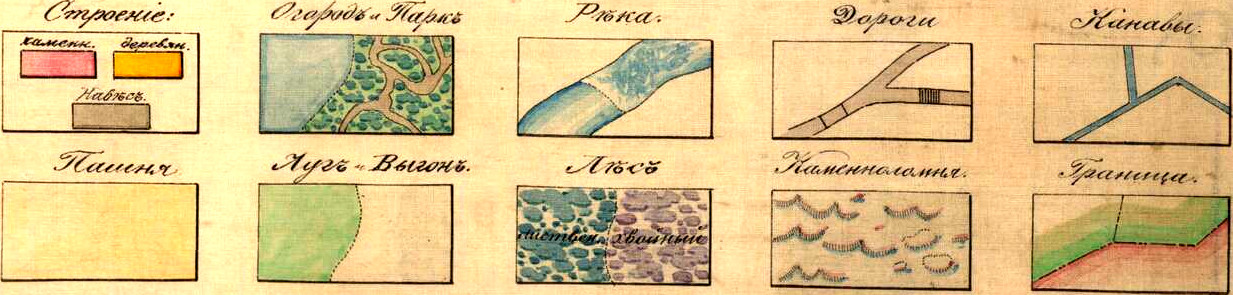 Строеніе:
каменн. деревян.
Навѣсъ.
Огородъ и Паркъ
Рѣка.
Дороги
Канавы.
Пашня
Лугъ и Выгонъ.
Лѣсъ
листвен. хвойный
Каменноломня.
Граница.